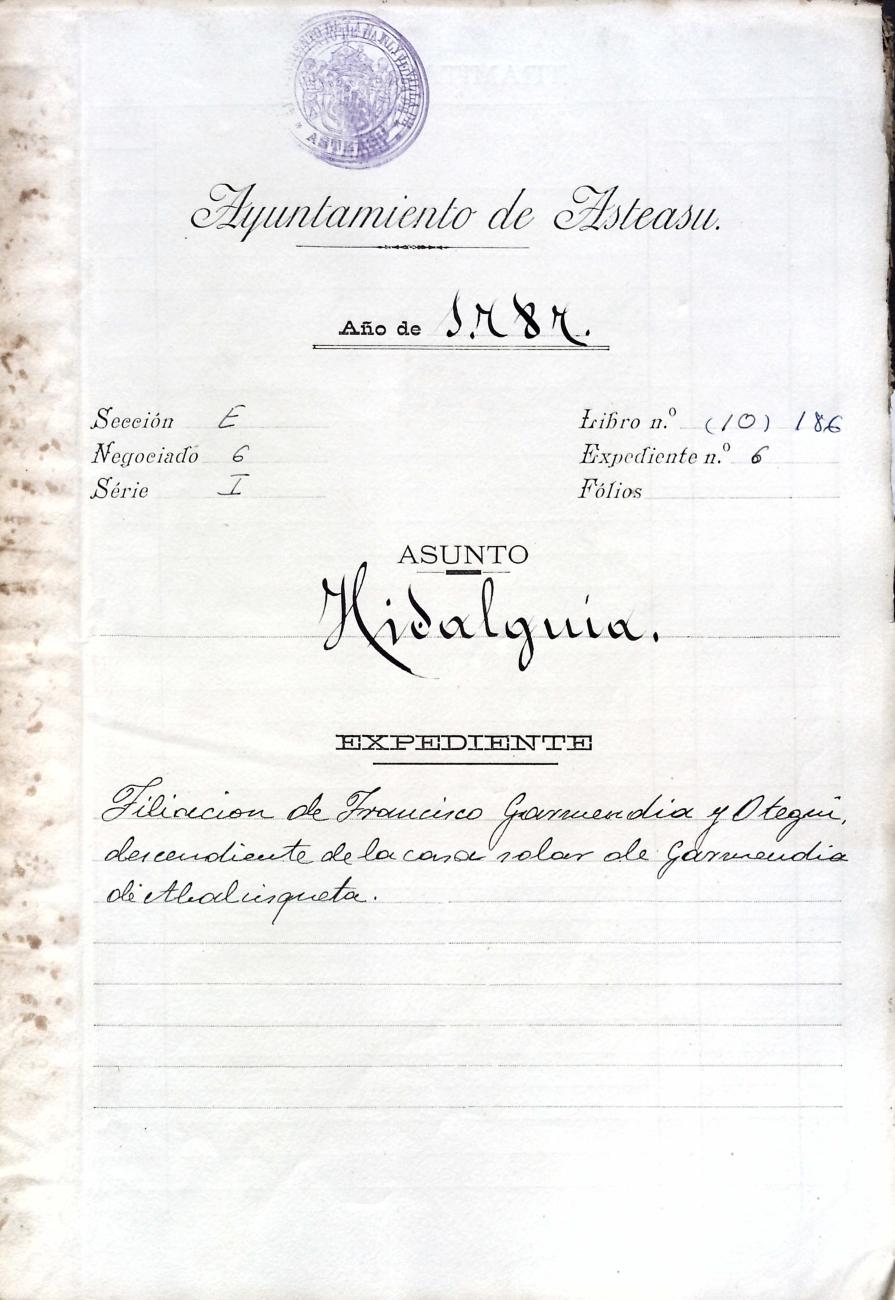 ASTEASU
Ayuntamiento de Asteasu.
Año de 1.787.
Sección E
Libro n.º (10) 186
Negociado 6
Expediente n.º 6
Série I
Fólios
ASUNTO
Hidalguía.
EXPEDIENTE
Filiacion de Francisco Garmendia y Otegui,
descendiente de la casa solar de Garmendia
de Abalisqueta.